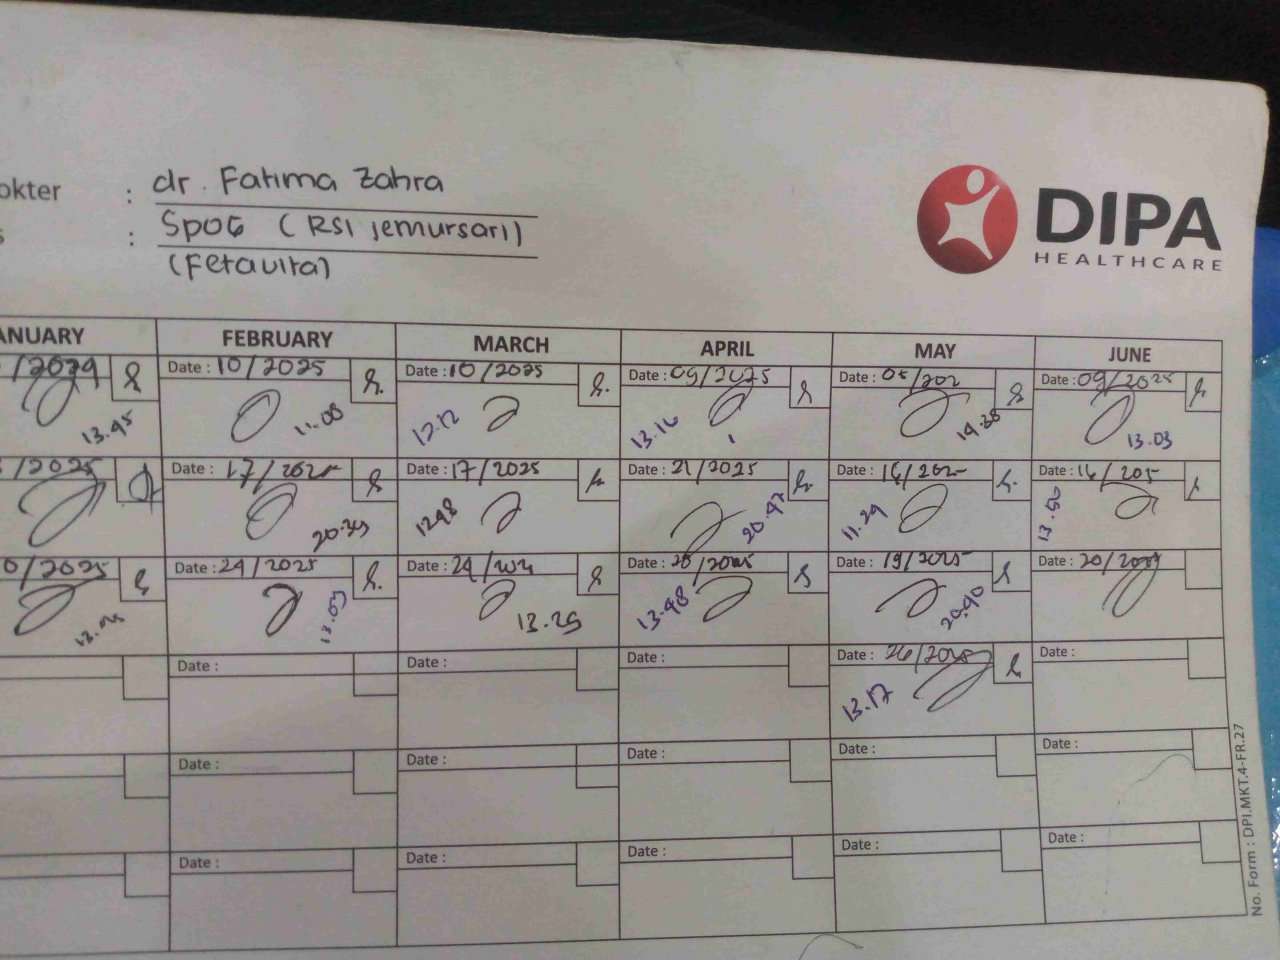 okter : dr. Fatima Zahra
s : SpOG (RSI Jemursari)
(Fetavita)
DIPA
HEALTHCARE
ANUARY FEBRUARY MARCH APRIL MAY JUNE
/2024 Date : 10/2025 Date : 10/2025 Date : 09/2025 Date : 05/202 Date : 09/2025
13.45 11.08 12.12 13.16 14.38 13.03
/2025 Date : 17/2025 Date : 17/2025 Date : 21/2025 Date : 14/2025 Date : 16/205
20.39 1248 20.47 11.29 13.50
0/2025 Date : 24/2025 Date : 24/ Date : 28/2025 Date : 19/2025 Date : 20/
13.03 13.29 13.48 20.40
Date : Date : Date : Date : 26/2025 Date :
13.17
Date : Date : Date : Date : Date :
Date : Date : Date : Date : Date :
No. Form : DPI.MKT.4-FR.27